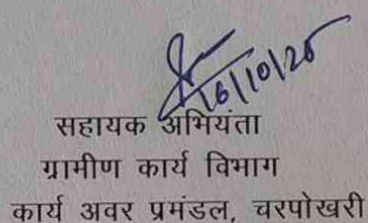 16/10/20
सहायक अभियंता
ग्रामीण कार्य विभाग
कार्य अवर प्रमंडल, चरपोखरी